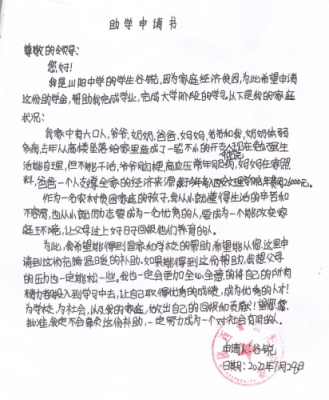 助学申请书
尊敬的领导：
您好！
我是山阳中学的学生谷锐，因为家庭经济贫困，为此希望申请
这份助学金，帮助我完成学业，完成大学阶段的学习，以下是我的家庭
状况：
我家中有六口人，爷爷，奶奶，爸爸，妈妈，弟弟和我，奶奶体弱
多病，去年从高楼坠落给家里造成了一笔不小的开支，现在
活能自理，但不能干活，爷爷高血压常年吃药，妈妈在家照
料，爸爸一个人支撑全家的经济来源，2600元。
作为一名农村贫困家庭的孩子，我从小就懂得生活的辛苦和
不容易，也从小就励志要成为一个优秀的人，要成为一个能改变家
庭环境，让父母过上好日子回报他们养育的人。
为此，我希望能得到国家和学校的帮助，希望能从您这里申
请到这份范锡温暖的补助，如果能得到这份帮助，我想父母
的压力也一定能松一些。我也一定会更加全心全意的将自己的所有
精力都投入到学习中去，让自己取得优秀的成绩，成为优秀的人才！
为学校，为社会，以及我的家庭，做出自己的回报和贡献！
批准，我定不会辜负这份补助，一定努力成为一个对社会有用的人。
申请人：谷锐
日期：2022年1月29日